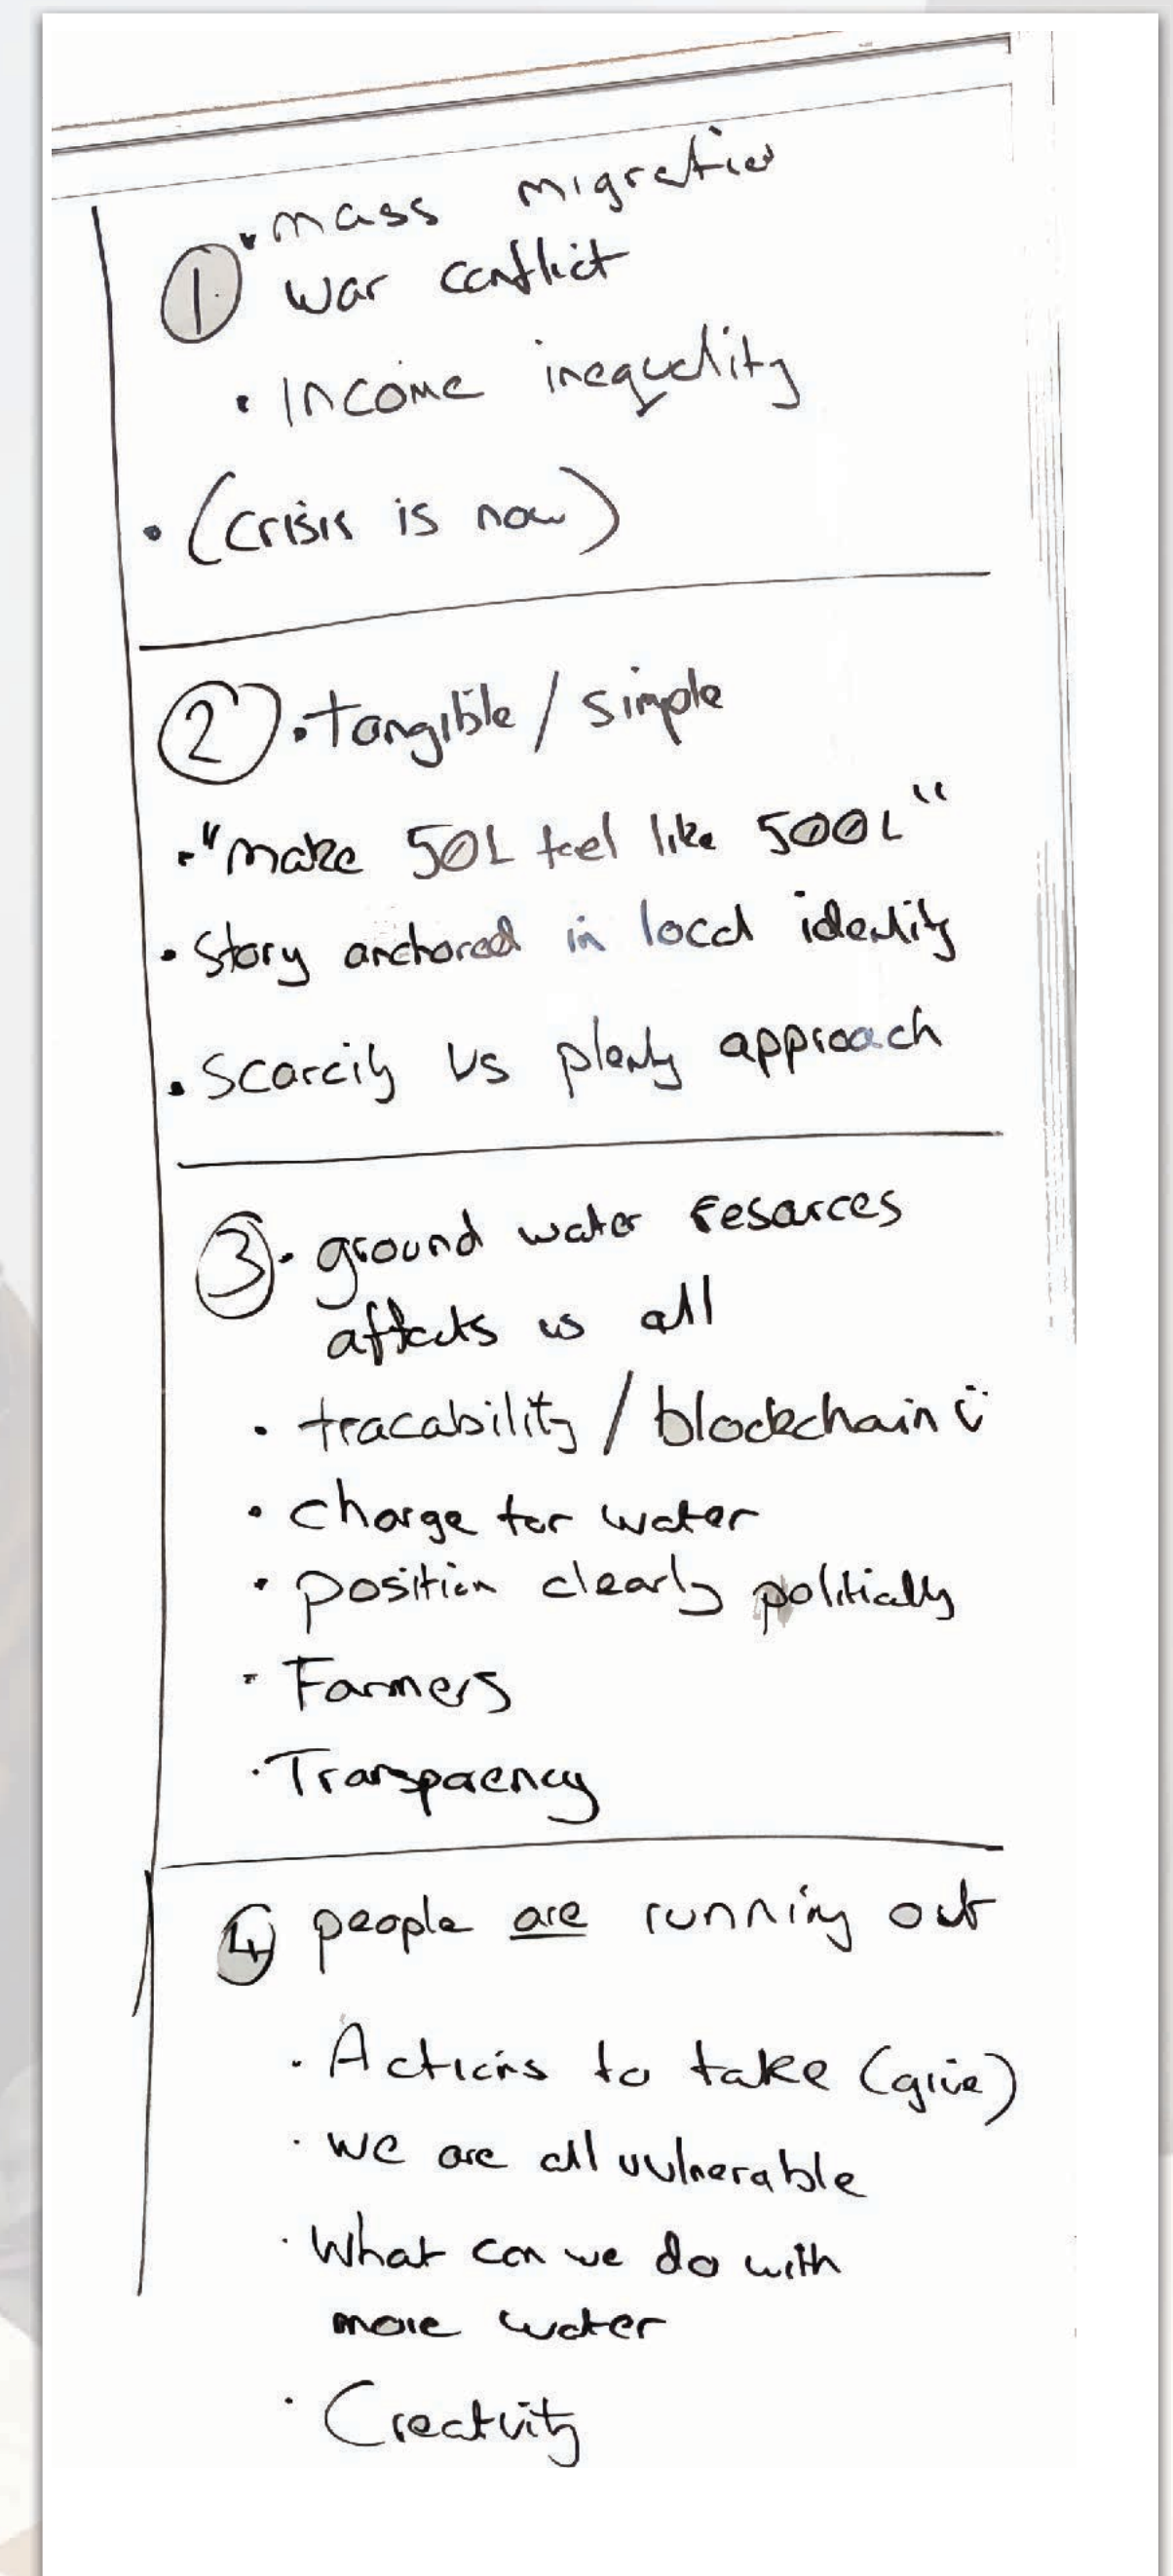 • mass migration
① war conflict
• Income inequality
• (crisis is now)
② • tangible / simple
• "make 50L feel like 500L"
• Story anchored in local identity
• Scarcity vs plenty approach
③ • ground water resources
affects us all
• tracability / blockchain ü
• charge for water
• position clearly politically
• Farmers
• Transparency
④ people are running out
• Actions to take (give)
• we are all vulnerable
• What can we do with
more water
• Creativity